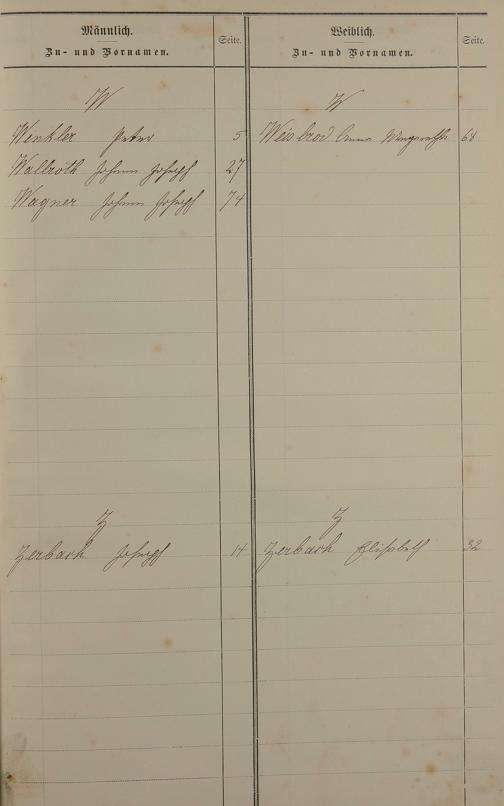 Männlich.
Zu- und Vornamen.
Seite.
W
Winkler Peter 5
Wallroth Johann Joseph 27
Wagner Johann Joseph 74
Z
Zerbach Joseph 14
Weiblich.
Zu- und Vornamen.
Seite.
W
Weisbrod Anna Margaretha 68
Z
Zerbach Elisabeth 32